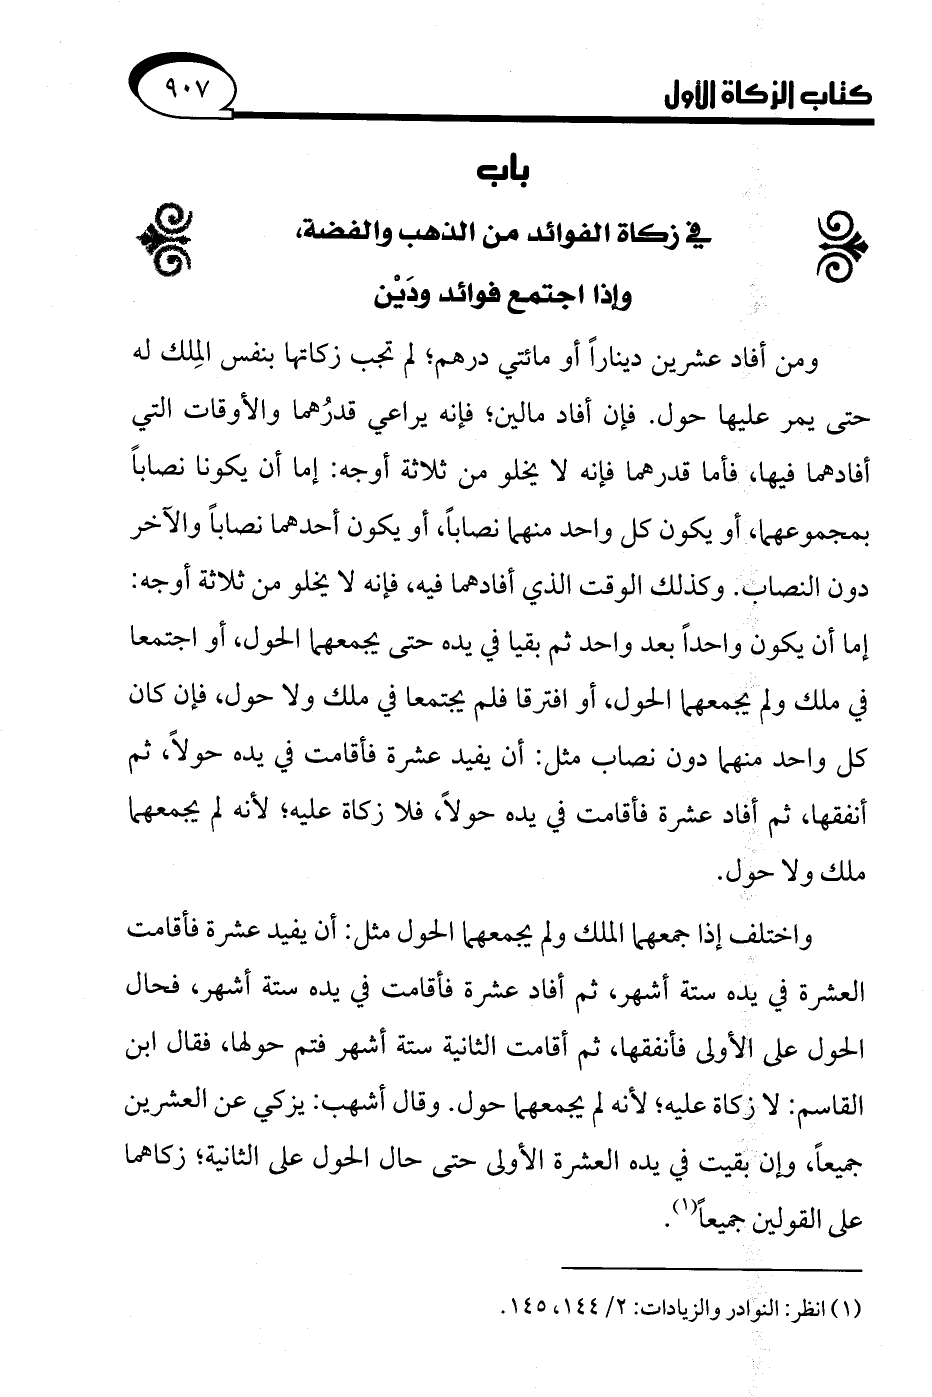 كتاب الزكاة الأول
٩٠٧
باب
في زكاة الفوائد من الذهب والفضة،
وإذا اجتمع فوائد ودَيْن
ومن أفاد عشرين ديناراً أو مائتي درهم؛ لم تجب زكاتها بنفس الملِك له
حتى يمر عليها حول. فإن أفاد مالين؛ فإنه يراعي قدرُهما والأوقات التي
أفادهما فيها، فأما قدرهما فإنه لا يخلو من ثلاثة أوجه: إما أن يكونا نصاباً
بمجموعهما، أو يكون كل واحد منهما نصاباً، أو يكون أحدهما نصاباً والآخر
دون النصاب. وكذلك الوقت الذي أفادهما فيه، فإنه لا يخلو من ثلاثة أوجه:
إما أن يكون واحداً بعد واحد ثم بقيا في يده حتى يجمعهما الحول، أو اجتمعا
في ملك ولم يجمعهما الحول، أو افترقا فلم يجتمعا في ملك ولا حول، فإن كان
كل واحد منهما دون نصاب مثل: أن يفيد عشرة فأقامت في يده حولاً، ثم
أنفقها، ثم أفاد عشرة فأقامت في يده حولاً، فلا زكاة عليه؛ لأنه لم يجمعهما
ملك ولا حول.
واختلف إذا جمعهما الملك ولم يجمعهما الحول مثل: أن يفيد عشرة فأقامت
العشرة في يده ستة أشهر، ثم أفاد عشرة فأقامت في يده ستة أشهر، فحال
الحول على الأولى فأنفقها، ثم أقامت الثانية ستة أشهر فتم حولها، فقال ابن
القاسم: لا زكاة عليه؛ لأنه لم يجمعهما حول. وقال أشهب: يزكي عن العشرين
جميعاً، وإن بقيت في يده العشرة الأولى حتى حال الحول على الثانية؛ زكاهما
على القولين جميعاً(١).
(١) انظر: النوادر والزيادات: ٢/ ١٤٤، ١٤٥.